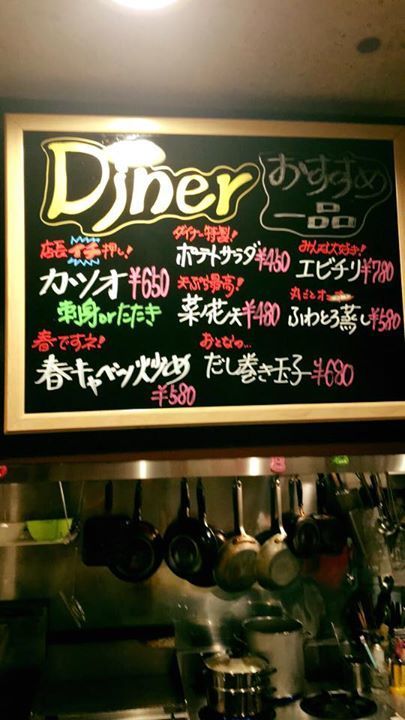 Diner
おすすめ
一品
店長イチ押し!
カツオ ¥650
刺身orたたき
ダイナー特製!
ポテトサラダ ¥450
みんな大好き!
エビチリ ¥780
天ぷら最高!
菜の花天 ¥480
丸ごと
ふわとろ蒸し ¥580
春ですネ!
春キャベツ炒め
¥580
おとなの…
だし巻き玉子 ¥680